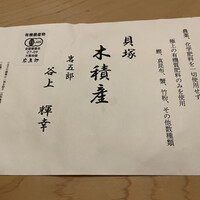 農薬、化学肥料を一切使用せず
極上の有機質肥料のみを使用
鰹、真昆布、蟹、竹粉、その他数種類
貝塚
木積産
岩五郎
谷上 輝幸
有機農産物
JAS